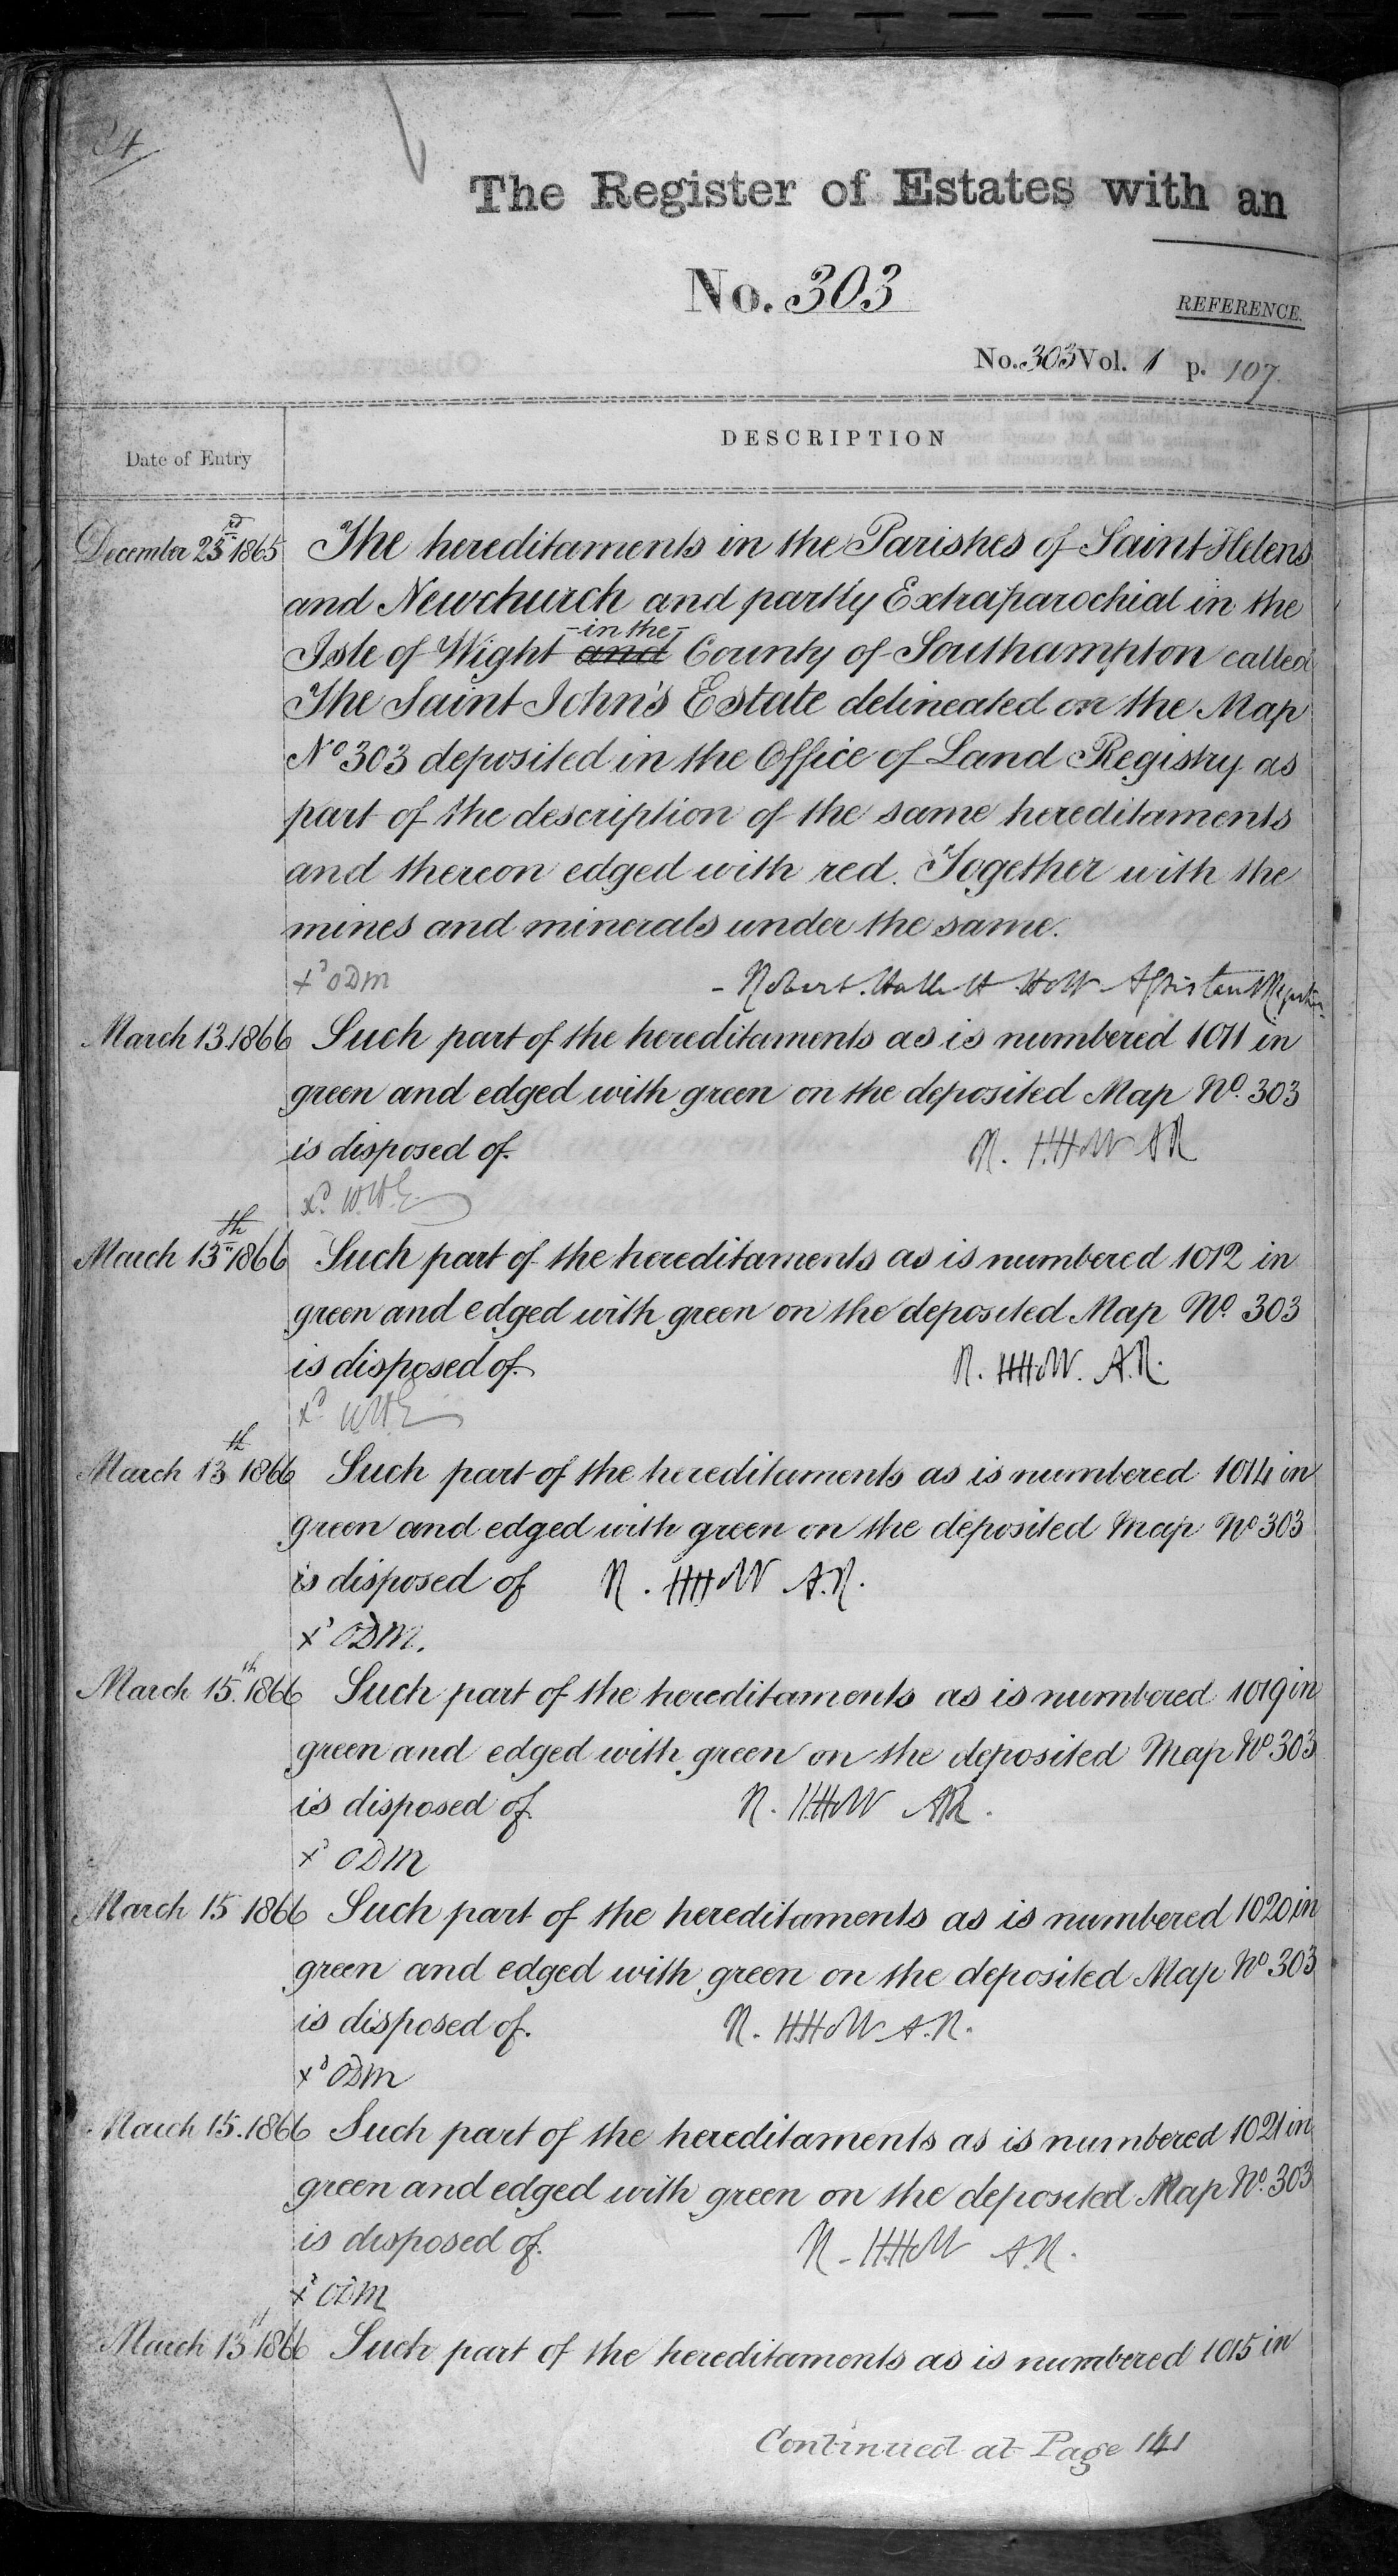 The Register of Estates with an
No. 303
REFERENCE.
No. 303 Vol. 1 p. 107
Date of Entry
DESCRIPTION
December 23rd 1865 The hereditaments in the Parishes of Saint Helens
and Newchurch and partly Extraparochial in the
-in the-
Isle of Wight and County of Southampton called
The Saint John's Estate delineated on the Map
No 303 deposited in the Office of Land Registry as
part of the description of the same hereditaments
and thereon edged with red. Together with the
mines and minerals under the same.
xd ODM - Robert Hallett Holt Assistant Registrar
March 13. 1866 Such part of the hereditaments as is numbered 1011 in
green and edged with green on the deposited Map No. 303
is disposed of. R. HHolt AR
xd. W.W.E.
March 13th 1866 Such part of the hereditaments as is numbered 1012 in
green and edged with green on the deposited Map No. 303
is disposed of. R. HHolt. A.R.
xd WWE
March 13th 1866 Such part of the hereditaments as is numbered 1014 in
green and edged with green on the deposited Map No 303
is disposed of R. HHolt A.R.
xd ODM.
March 15th 1866 Such part of the hereditaments as is numbered 1019 in
green and edged with green on the deposited Map No 303
is disposed of R. HHolt AR.
xd ODM
March 15 1866 Such part of the hereditaments as is numbered 1020 in
green and edged with green on the deposited Map No 303
is disposed of. R. HHolt A.R.
xd ODM
March 15. 1866 Such part of the hereditaments as is numbered 1021 in
green and edged with green on the deposited Map No. 303
is disposed of. R. HHolt A.R.
xd ODM
March 13th 1866 Such part of the hereditaments as is numbered 1015 in
Continued at Page 141